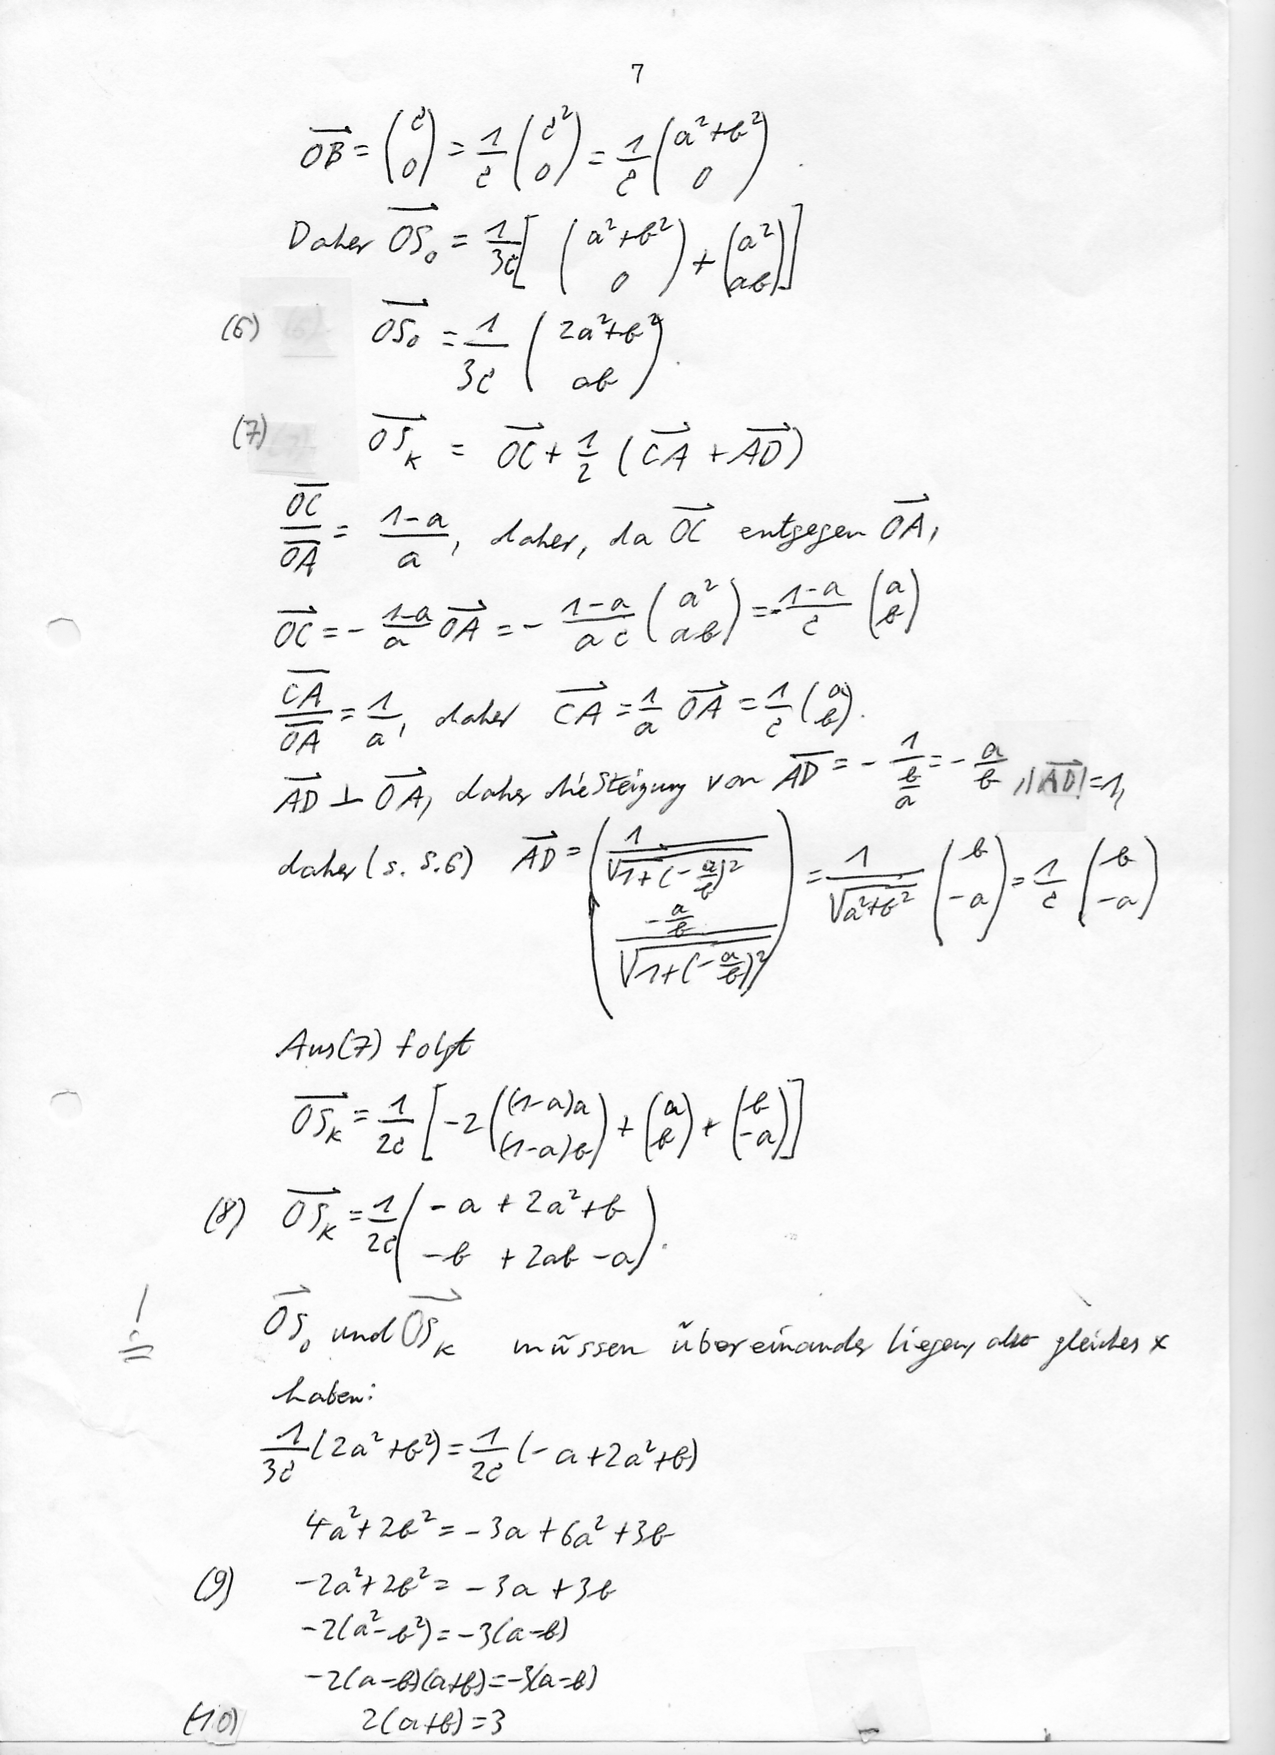 7
$\overrightarrow{OB} = \begin{pmatrix} c \\ 0 \end{pmatrix} = \frac{1}{c} \begin{pmatrix} c^2 \\ 0 \end{pmatrix} = \frac{1}{c} \begin{pmatrix} a^2+b^2 \\ 0 \end{pmatrix}.$
Daher $\overrightarrow{OS_0} = \frac{1}{3c} \left[ \begin{pmatrix} a^2+b^2 \\ 0 \end{pmatrix} + \begin{pmatrix} a^2 \\ ab \end{pmatrix} \right]$
(6) $\overrightarrow{OS_0} = \frac{1}{3c} \begin{pmatrix} 2a^2+b^2 \\ ab \end{pmatrix}.$
(7) $\overrightarrow{OS_K} = \overrightarrow{OC} + \frac{1}{2} (\overrightarrow{CA} + \overrightarrow{AD})$
$\frac{\overline{OC}}{\overline{OA}} = \frac{1-a}{a}$, daher, da $\overrightarrow{OC}$ entgegen $\overrightarrow{OA}$,
$\overrightarrow{OC} = -\frac{1-a}{a} \overrightarrow{OA} = -\frac{1-a}{ac} \begin{pmatrix} a^2 \\ ab \end{pmatrix} = -\frac{1-a}{c} \begin{pmatrix} a \\ b \end{pmatrix}$
$\frac{\overline{CA}}{\overline{OA}} = \frac{1}{a}$, daher $\overrightarrow{CA} = \frac{1}{a} \overrightarrow{OA} = \frac{1}{c} \begin{pmatrix} a \\ b \end{pmatrix}.$
$\overrightarrow{AD} \perp \overrightarrow{OA}$, daher die Steigung von $\overrightarrow{AD} = -\frac{1}{\frac{b}{a}} = -\frac{a}{b}$, $|\overrightarrow{AD}| = 1$,
daher (s. S. 6) $\overrightarrow{AD} = \begin{pmatrix} \frac{1}{\sqrt{1+(-\frac{a}{b})^2}} \\ \frac{-\frac{a}{b}}{\sqrt{1+(-\frac{a}{b})^2}} \end{pmatrix} = \frac{1}{\sqrt{a^2+b^2}} \begin{pmatrix} b \\ -a \end{pmatrix} = \frac{1}{c} \begin{pmatrix} b \\ -a \end{pmatrix}$
Aus (7) folgt
$\overrightarrow{OS_K} = \frac{1}{2c} \left[ -2 \begin{pmatrix} (1-a)a \\ (1-a)b \end{pmatrix} + \begin{pmatrix} a \\ b \end{pmatrix} + \begin{pmatrix} b \\ -a \end{pmatrix} \right]$
(8) $\overrightarrow{OS_K} = \frac{1}{2c} \begin{pmatrix} -a + 2a^2 + b \\ -b + 2ab - a \end{pmatrix}.$
! $\overrightarrow{OS_0}$ und $\overrightarrow{OS_K}$ müssen übereinander liegen, also gleiches x
haben:
$\frac{1}{3c} (2a^2+b^2) = \frac{1}{2c} (-a+2a^2+b)$
$4a^2+2b^2 = -3a+6a^2+3b$
(9) $-2a^2+2b^2 = -3a+3b$
$-2(a^2-b^2) = -3(a-b)$
$-2(a-b)(a+b) = -3(a-b)$
(10) $2(a+b) = 3$